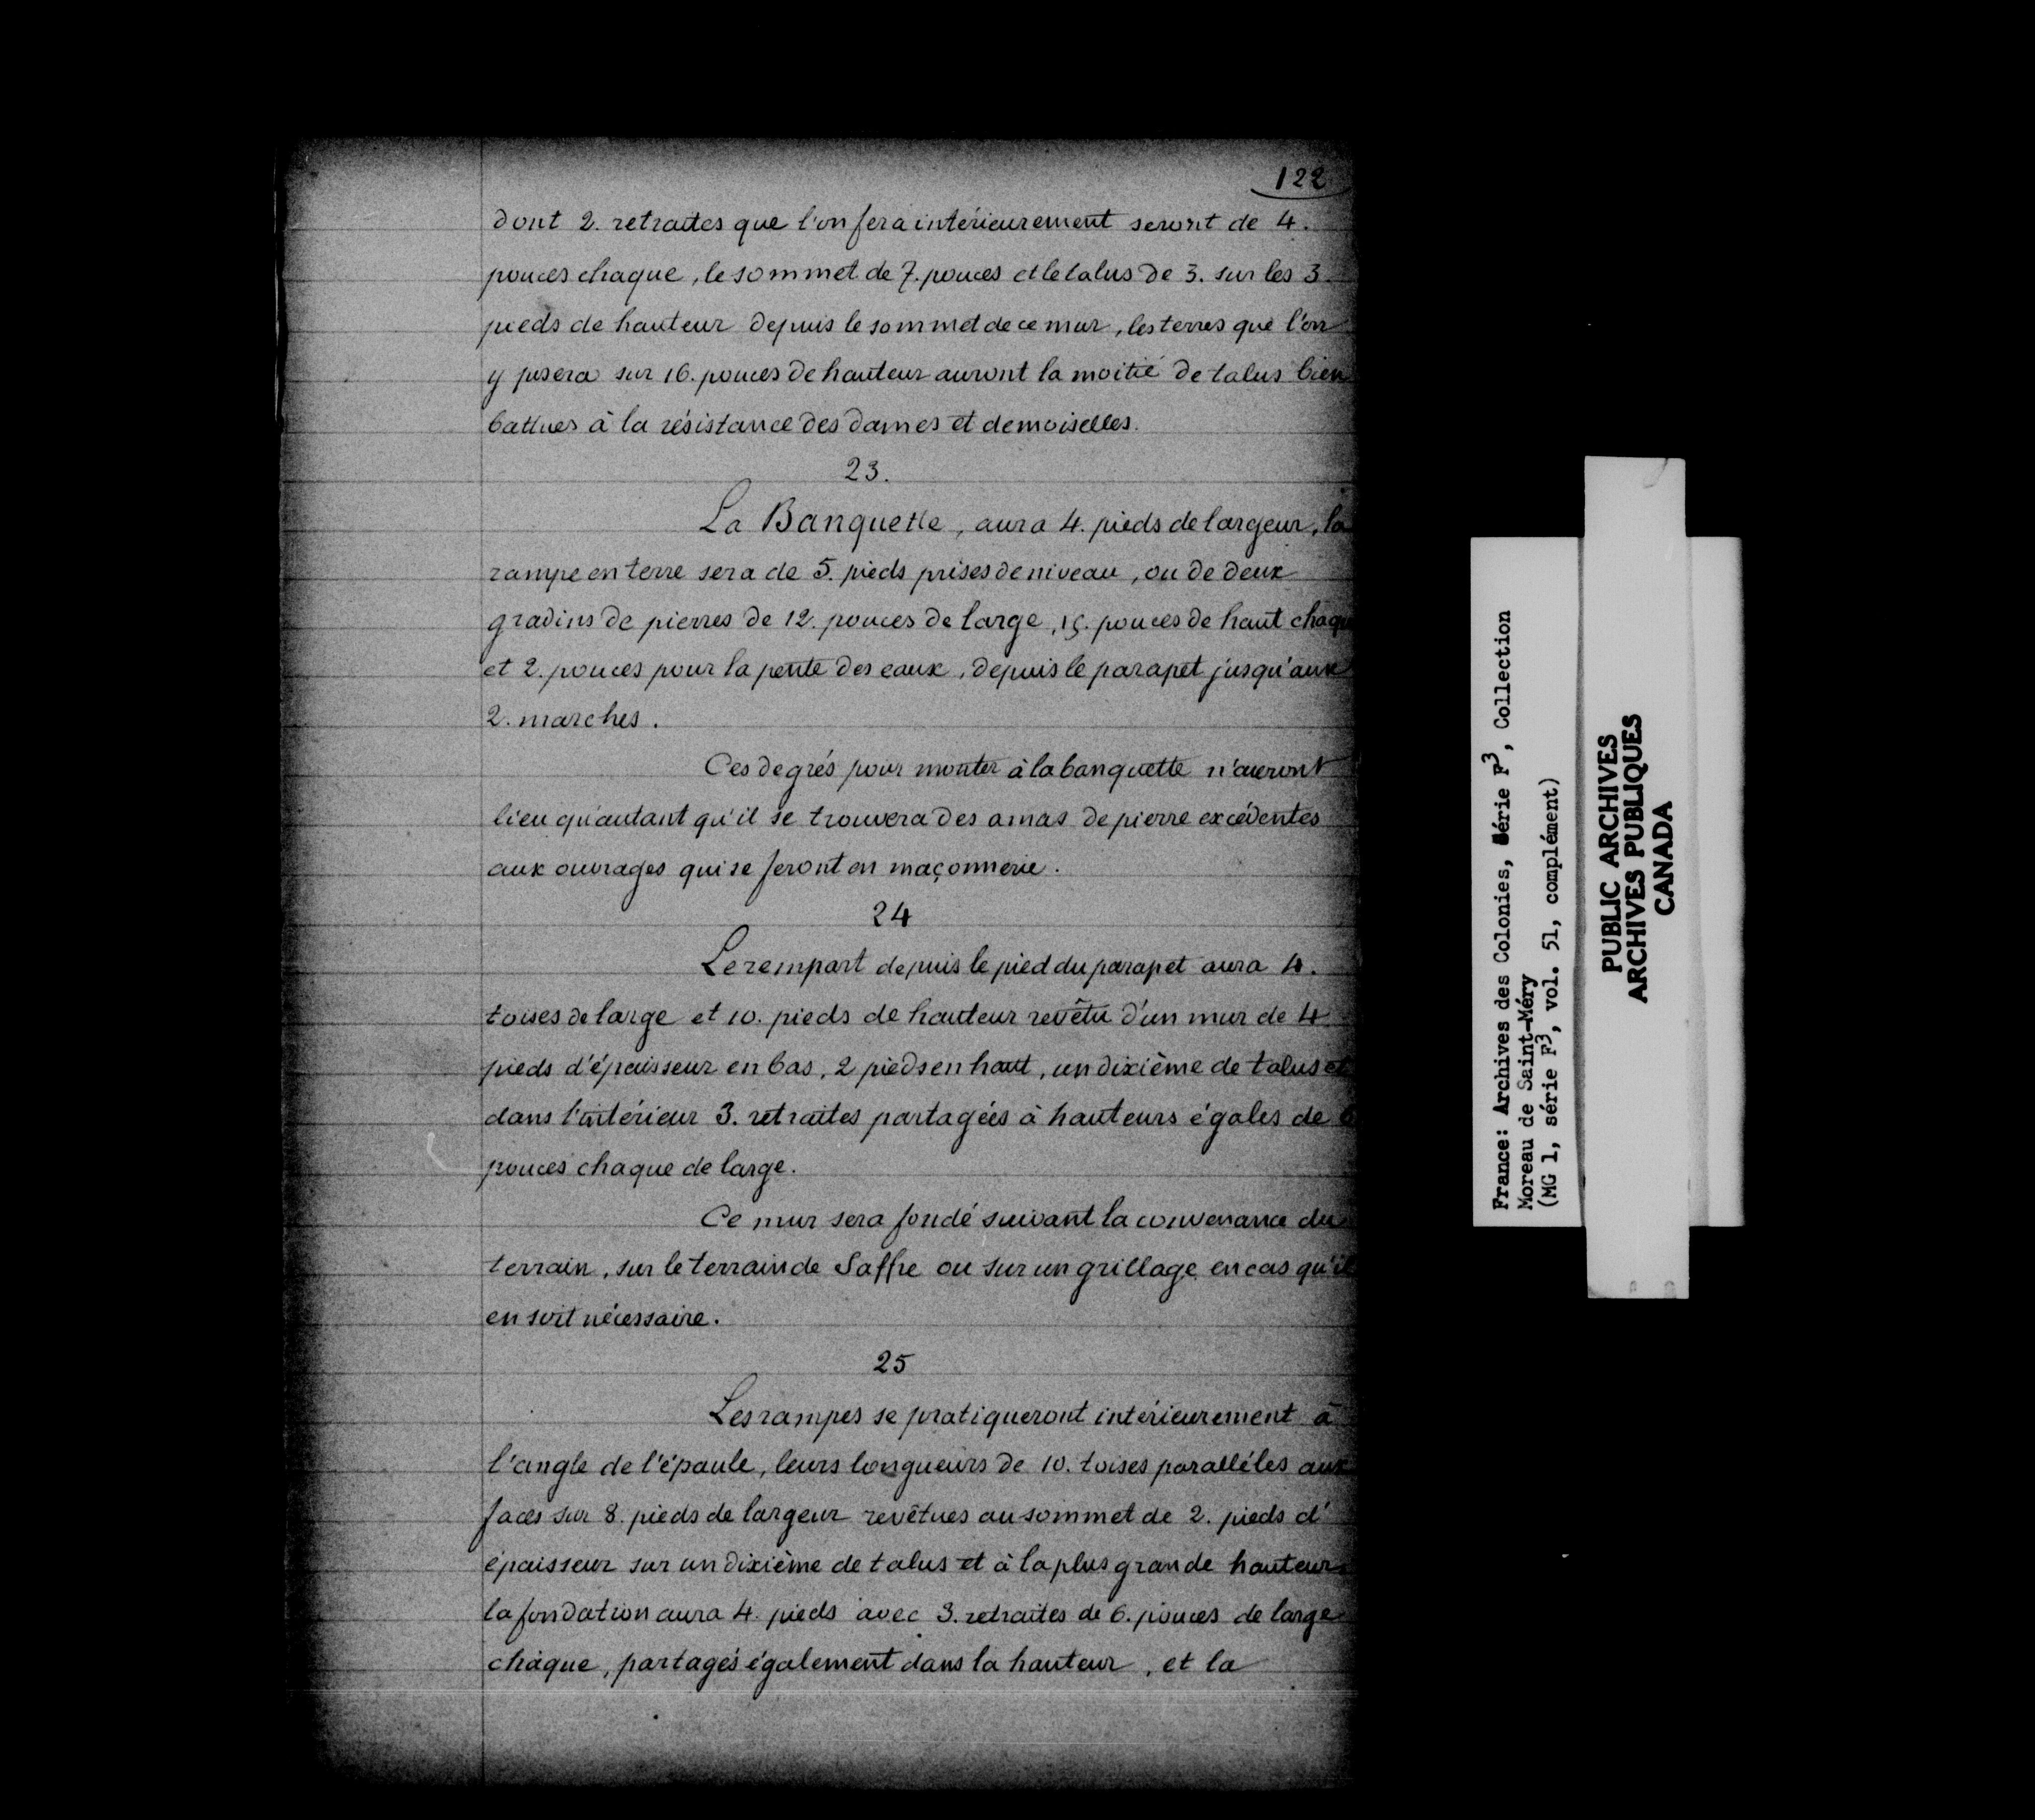 122
dont 2. retraites que l'on fera intérieurement seront de 4.
pouces chaque, le sommet de 7. pouces et le talus de 3. sur les 3.
pieds de hauteur depuis le sommet de ce mur, les terres que l'on
y posera sur 16. pouces de hauteur auront la moitié de talus bien
battues à la résistance des dames et demoiselles.
23.
La Banquette, aura 4. pieds de largeur, la
rampe en terre sera de 5. pieds prises de niveau, ou de deux
gradins de pierres de 12. pouces de large, 15. pouces de haut chaque
et 2. pouces pour la pente des eaux, depuis le parapet jusqu'aux
2. marches.
Ces degrés pour monter à la banquette n'aueront
lieu qu'autant qu'il se trouvera des amas de pierre excédentes
aux ouvrages qui se feront en maçonnerie.
24
Le rempart depuis le pied du parapet aura 4.
toises de large et 10. pieds de hauteur revêtu d'un mur de 4
pieds d'épaisseur en bas, 2 pieds en haut, un dixième de talus et
dans l'intérieur 3. retraites partagées à hauteurs égales de 6
pouces chaque de large.
Ce mur sera fondé suivant la convenance du
terrain, sur le terrain de Saffre ou sur un grillage en cas qu'il
en soit nécessaire.
25
Les rampes se pratiqueront intérieurement à
l'angle de l'épaule, leurs longueurs de 10. toises parallèles aux
faces sur 8. pieds de largeur revêtues au sommet de 2. pieds d'
épaisseur sur un dixième de talus et à la plus grande hauteur
la fondation aura 4. pieds avec 3. retraites de 6. pouces de large
chaque, partagés également dans la hauteur, et la
France: Archives des Colonies, Série F3, Collection
Moreau de Saint-Méry
(MG 1, série F3, vol. 51, complément)
PUBLIC ARCHIVES
ARCHIVES PUBLIQUES
CANADA